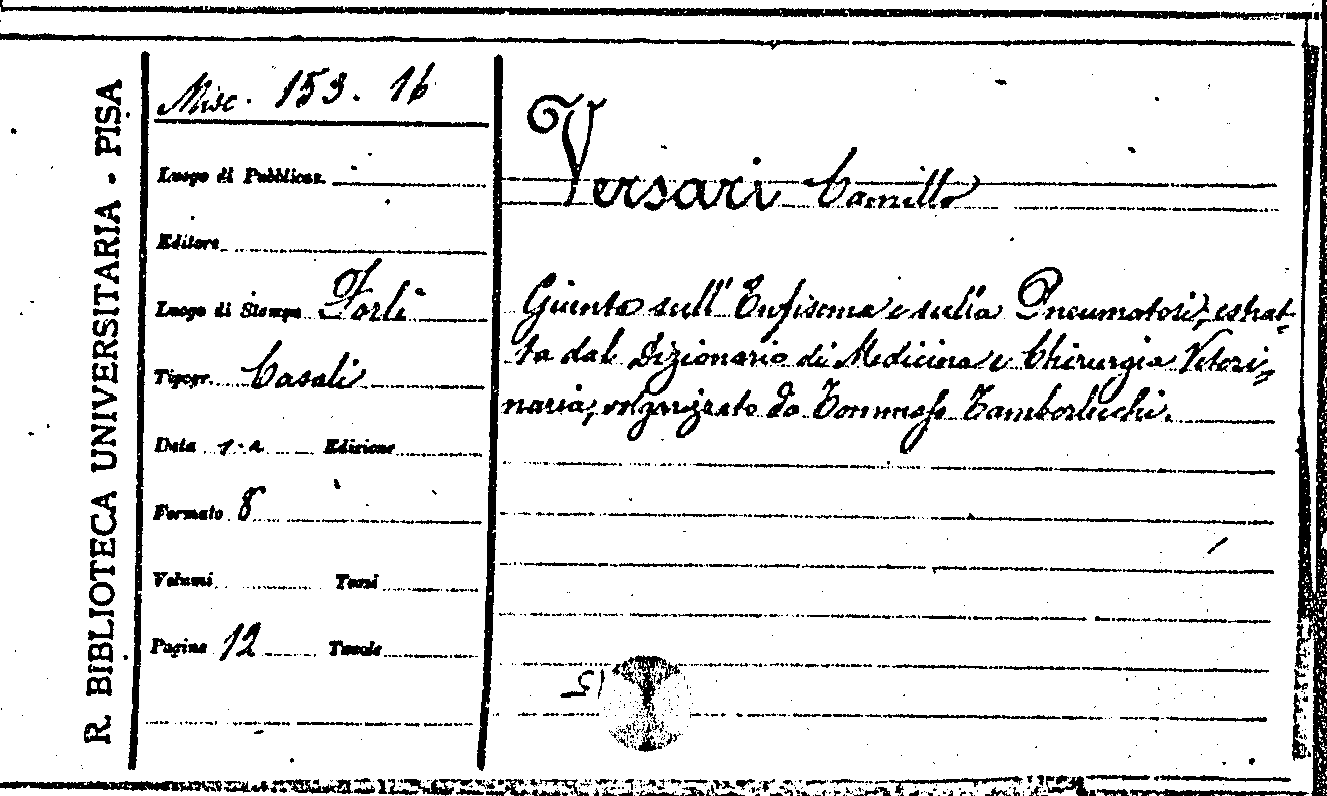 R. BIBLIOTECA UNIVERSITARIA - PISA
Misc. 153. 16
Luogo di Pubblicaz.
Editore
Luogo di Stampa Forlì
Tipogr. Casali
Data s. a. Edizione
Formato 8
Volumi Tomi
Pagine 12 Tavole
Versari Camillo
Giunta sull' Enfisema e sulla Pneumatosi, estrat-
ta dal Dizionario di Medicina e Chirurgia Veteri-
naria, volgarizzato da Tommaso Tamborlicchi.